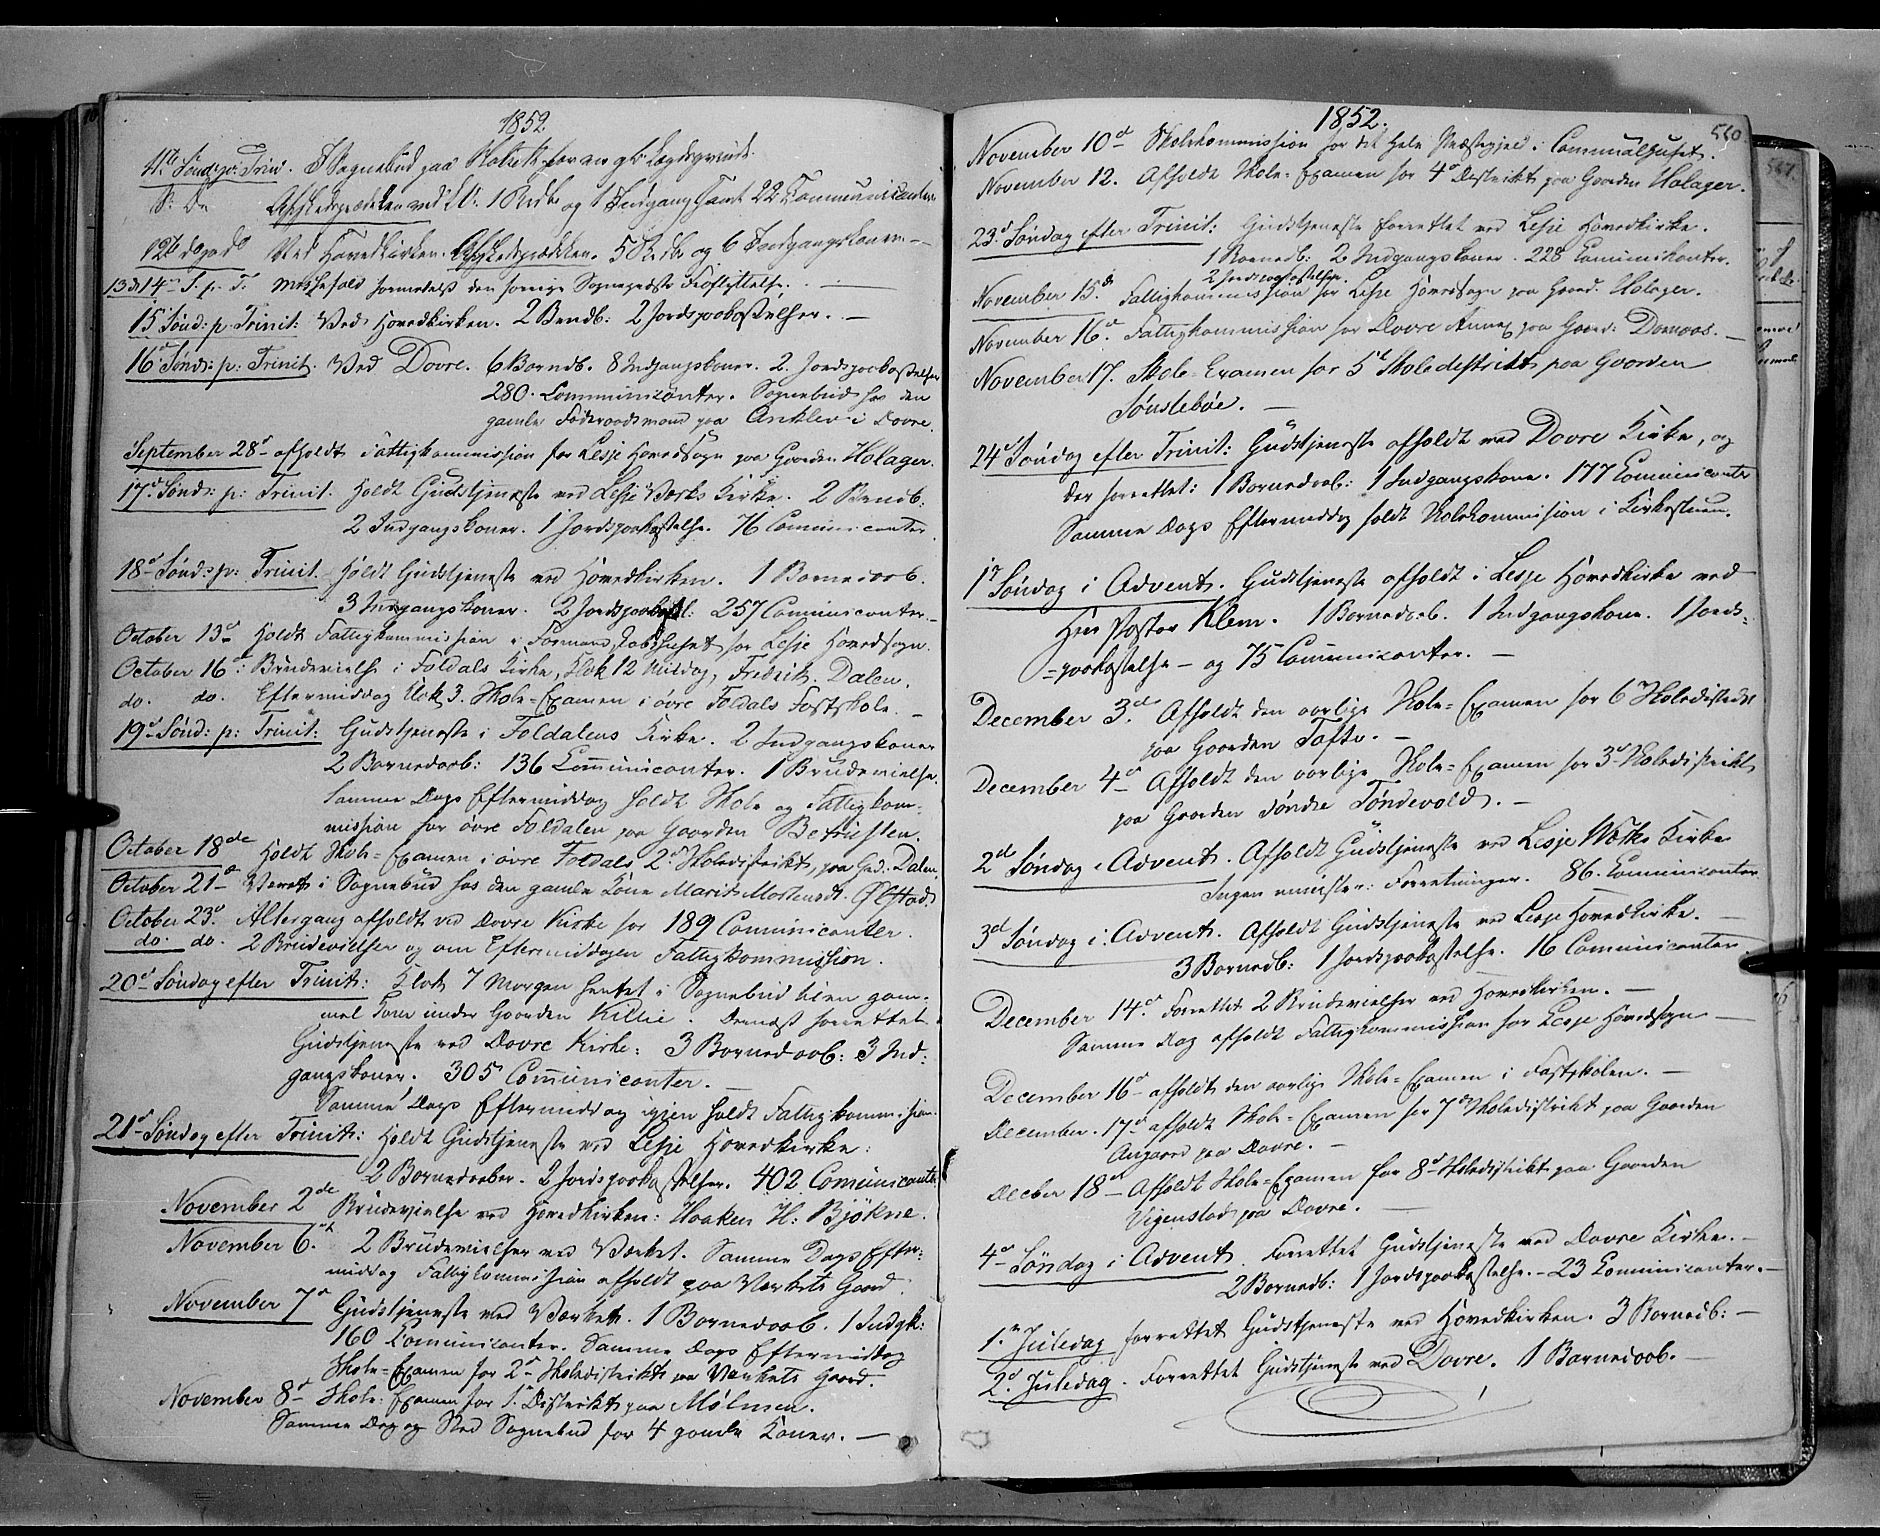 1852
11te Sønd: p: Trin. I Sognebud paa
D: Do Afskedsprædiken ved 1 og 1 Indgang samt 22 Communicanter
12te do p: do Ved Hovedkirken. Afskedsprædiken. 5 og 6 Indgangskoner
13de & 14de S. p. T. Messefald formedelst den forrige Sognepræsts Fraflyttelse.
15 Sønd: p: Trinit: Ved Hovedkirken. 2 Barndb: 2 Jordspaakastelser.
16de Sønd: p: Trinit. Ved Dovre. 6 Barndb. 8 Indgangskoner. 2 Jordspaakastelser
280 Communicanter. Sognebud hos den
gamle Føderaadsmand paa i Dovre.
September 28de afholdt Fattigkommission for Lesje Hovedsogn paa Gaarden Holager.
17de Sønd: p: Trinit. Holdt Gudstjeneste ved Lesje Værks Kirke. 2 Barndb:
2 Indgangskoner. 1 Jordspaakastelse. 76 Communicanter
18de Sønd: p: Trinit. Holdt Gudstjeneste ved Hovedkirken. 1 Barnedaab.
3 Indgangskoner. 2 Jordspaakastl: 257 Communicanter.
October 13de Holdt Fattigkommission i for Lesje Hovedsogn.
October 16de: Brudevielse i Foldals Kirke, Klok 12 Middag, Fredrik Dalen.
do. do. Eftermiddag Klok 3. Skole-Examen i øvre Foldals Fastskole.
19de Sønd: p: Trinit: Gudstjeneste i Foldalens Kirke. 2 Indgangskoner
2 Barnedaab: 136 Communicanter. 1 Brudevielse.
Samme Dags Eftermiddag holdt Skole og Fattigkom-
mission for øvre Foldalen paa Gaarden
October 18de Holdt Skole-Examen i øvre Foldals 2det Skoledistrikt, paa Grd: Dalen.
October 21de Været i Sognebud hos den gamle Kone Marit Mortensdt.
October 23de Altergang afholdt ved Dovre Kirke for 189 Communicanter.
do. do. 2 Brudevielser og om Eftermiddagen Fattigkommission.
20de Søndag efter Trinit: Klok 7 Morgen hentet i Sognebud til en gam-
mel under Gaarden Killie. Dernæst forrettet
Gudstjeneste ved Dovre Kirke: 3 Barnedaab: 3 Ind-
gangskoner. 305 Communicanter.
Samme Dags Eftermiddag igjen holdt Fattigkommission.
21de Søndag efter Trinit: Holdt Gudstjeneste ved Lesje Hovedkirke:
2 Barnedaaber. 2 Jordspaakastelser. 402 Communicanter.
November 2de Brudevielse ved Hovedkirken: Haaken H: Bjøkne.
November 6te 2 Brudevielser ved Værket. Samme Dags Efter-
middag Fattigkommission afholdt paa Værkets Gaard.
November 7de Gudstjeneste ved Værket. 1 Barnedaab. 1 Indgk:
160 Communicanter. Samme Dags Eftermiddag
Skole-Examen for 2det Skoledistrikt paa Værkets Gaard.
November 8de Skole-Examen for 1ste Distrikt paa Mølmen.
Samme Dag og Sted Sognebud for 4 gamle Koner.
1852.
560
November 10de Skolekommission for det hele Præstegjeld i Communalhuset.
November 12. Afholdt Skole-Examen for 4de Distrikt paa Gaarden Holager.
23de Søndag efter Trinit: Gudstjeneste forrettet ved Lesje Hovedkirke.
1 Barnedb: 2 Indgangskoner. 228 Communicanter.
2 Jordspaakastelser.
November 15de Fattigkommission for Lesje Hovedsogn paa Gaard. Holager.
November 16de Fattigkommission for Dovre Annex paa Gaard: Domaas.
November 17. Skole-Examen for 5te Skoledistrikt paa Gaarden
Sønstebøe.
24de Søndag efter Trinit: Gudstjeneste afholdt ved Dovre Kirke, og
der forrettet: 1 Barnedaab: 1 Indgangskone. 177 Communicanter
Samme Dags Eftermiddag holdt Skolekommission i Kirkestuen.
1ste Søndag i Advent. Gudstjeneste afholdt i Lesje Hovedkirke ved
Herr Pastor Klem. 1 Barnedaab. 1 Indgangskone. 1 Jords-
-paakastelse - og 75 Communicanter.
December 3de. Afholdt den aarlige Skole-Examen for 6 Skoledistrikt
paa Gaarden Tofte.
December 4de Afholdt den aarlige Skole-Examen for 3de Skoledistrikt
paa Gaarden søndre Tøndevold.
2den Søndag i Advent. Afholdt Gudstjeneste ved Lesje Værks Kirke
Ingen minister: Forretninger. 86. Communicanter
3de Søndag i Advent. Afholdt Gudstjeneste ved Lesje Hovedkirke.
3 Barnedb: 1 Jordspaakastelse. 16 Communicanter
December 14de. Forrettet 2 Brudevielser ved Hovedkirken.
Samme Dag afholdt Fattigkommission for Lesje Hovedsogn
December 16de afholdt den aarlige Skole-Examen i Fastskolen.
December 17de afholdt Skole-Examen for 7de Skoledistrikt paa Gaarden
Angaard paa Dovre.
Decber 18de Afholdt Skole-Examen for 8de Skoledistrikt paa Gaarden
Vigenstad paa Dovre.
4de Søndag i Advent. Forrettet Gudstjeneste ved Dovre Kirke.
2 Barnedb: 1 Jordspaakastelse. - 23 Communicanter.
1ste Juledag forrettet Gudstjeneste ved Hovedkirken. 3 Barnedb:
2den Juledag. Forrettet Gudstjeneste ved Dovre. 1 Barnedaab.
561.